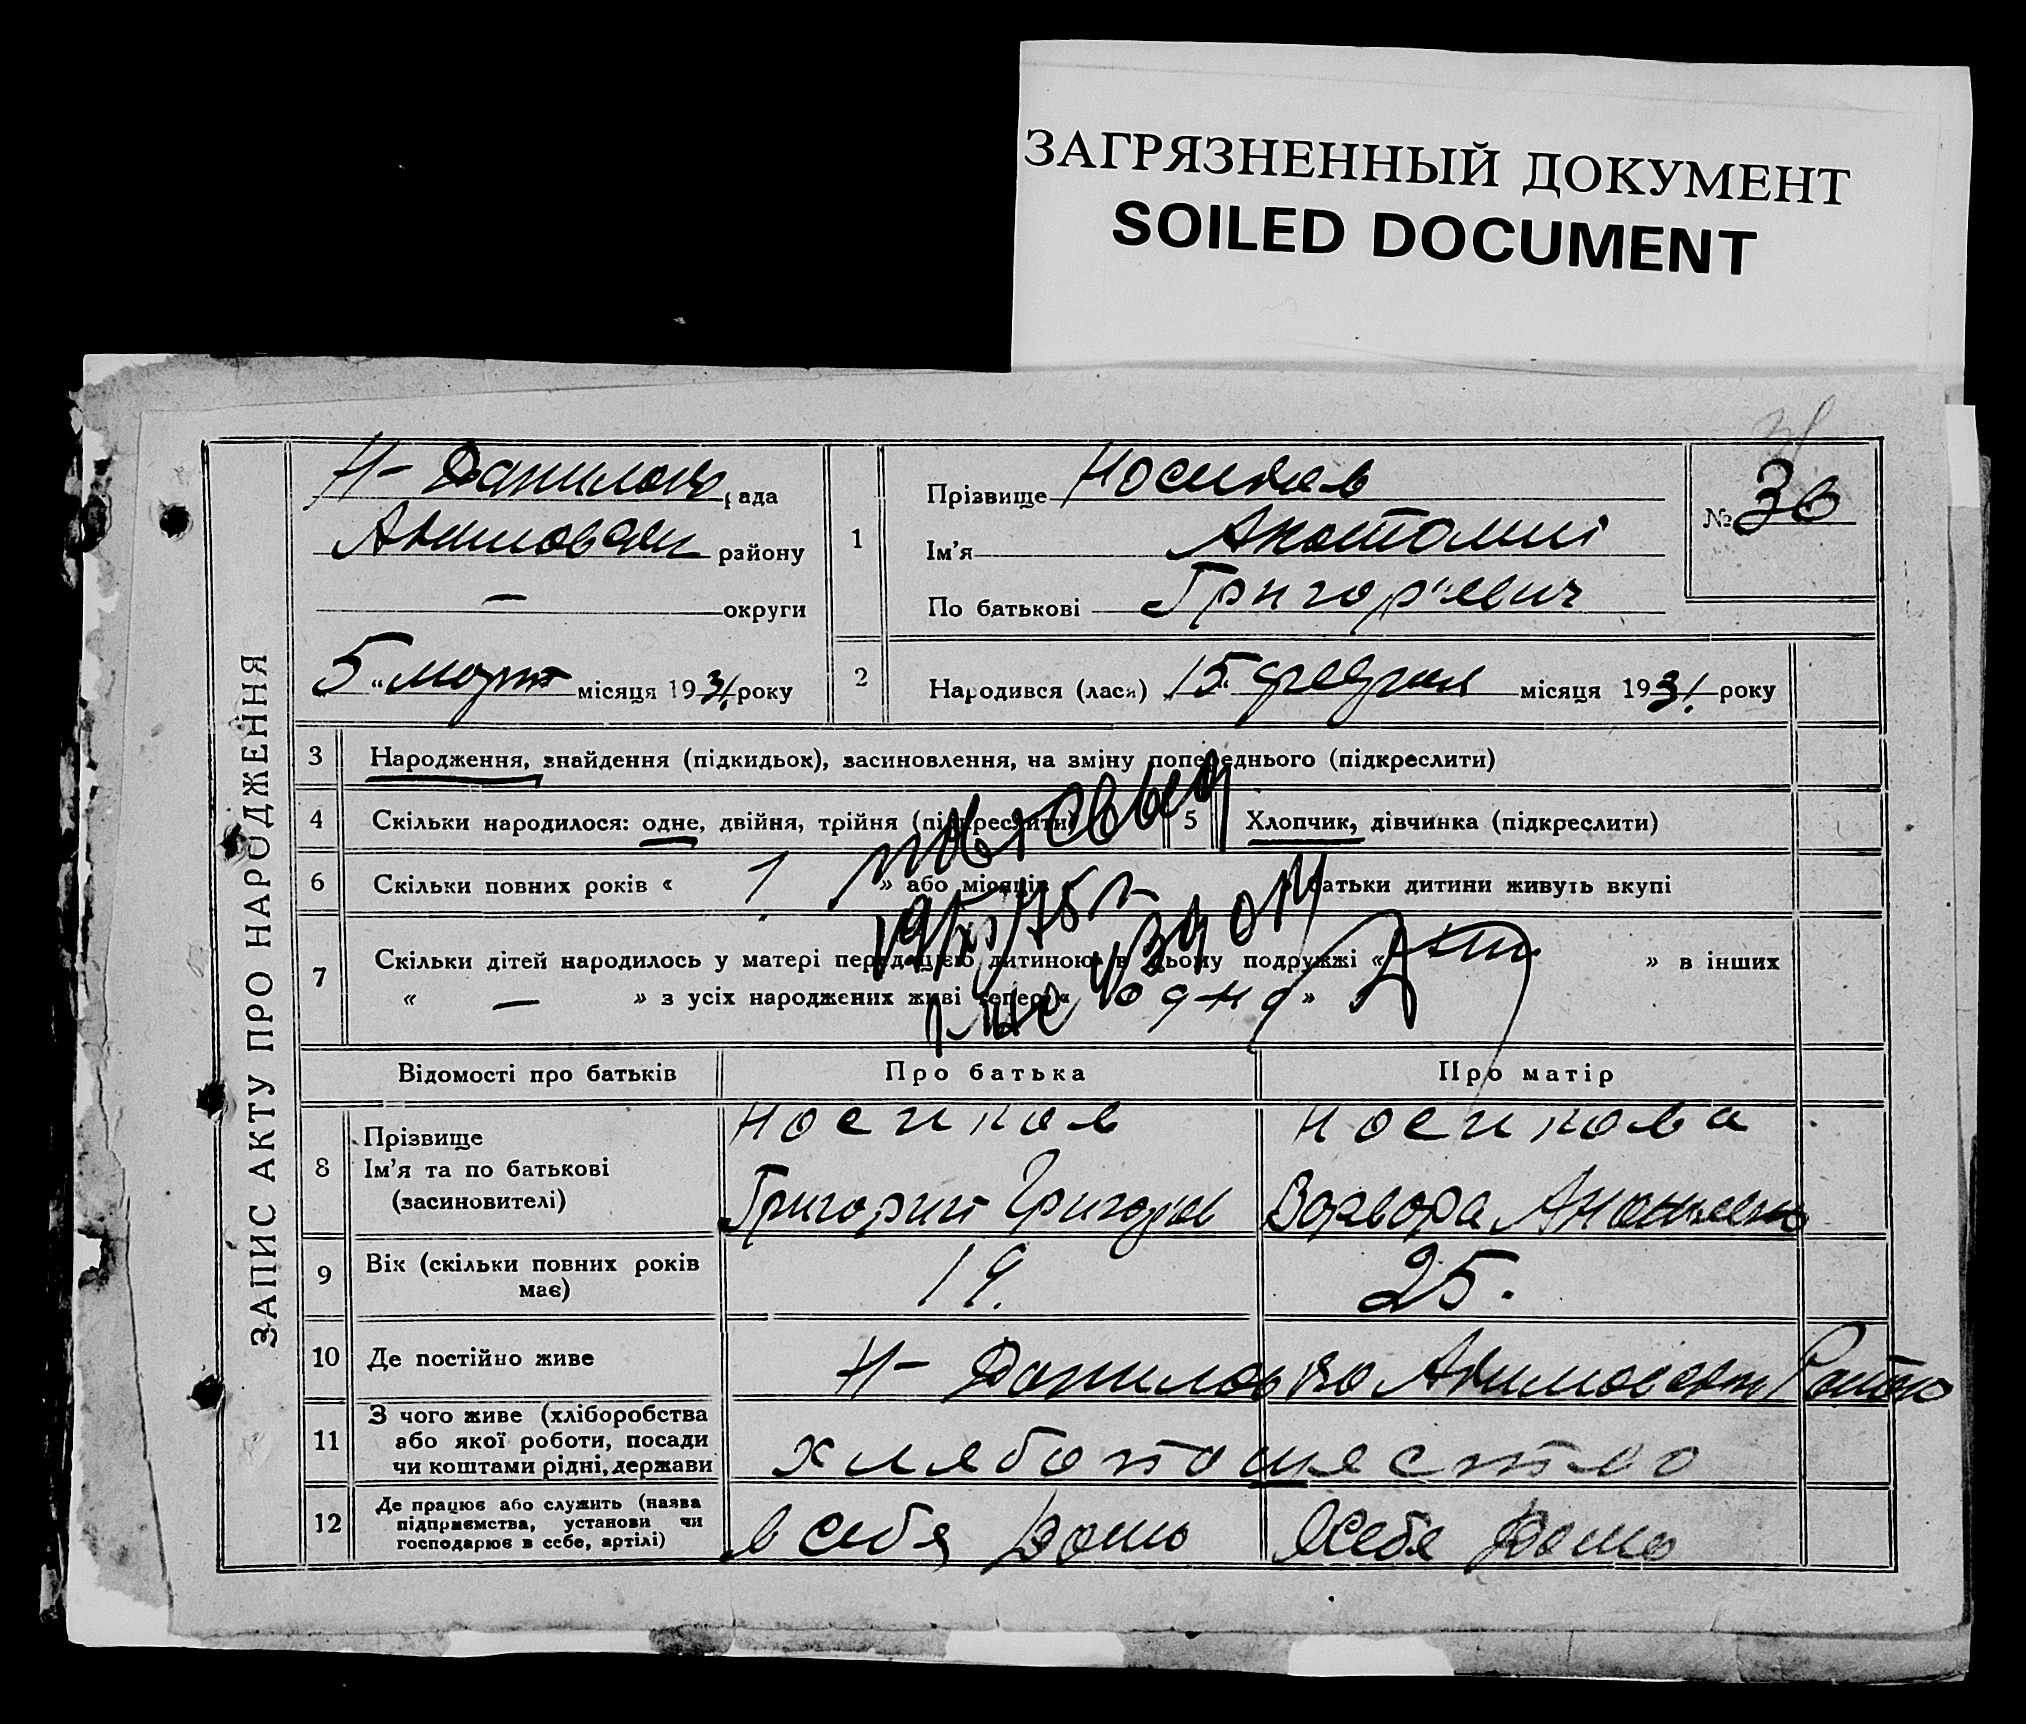 ЗАГРЯЗНЕННЫЙ ДОКУМЕНТ
SOILED DOCUMENT
ЗАПИС АКТУ ПРО НАРОДЖЕННЯ
Н- Данилов рада
района району
— округи
5 „ март місяця 1931. року
1
Прізвище
Ім'я Анатолий
По батькові Григор'евич
№ 36
2 Народився (лася) 15 „ февраля місяця 1931. року
3 Народження, знайдення (підкидьок), засиновлення, на зміну попереднього (підкреслити)
4 Скільки народилося: одне, двійня, трійня (підкреслити)
5 Хлопчик, дівчинка (підкреслити)
6 Скільки повних років « 1 » або місяців батьки дитини живуть вкупі
7 Скільки дітей народилось у матері перед цією дитиною: в цьому подружжі « » в інших
« — » з усіх народжених живі тепер « одна »
Відомості про батьків
Про батька
Про матір
8 Прізвище
Ім'я та по батькові
(засиновителі)
Носиков
Григорий Григорев
Носикова
Варвара
9 Вік (скільки повних років
має)
19.
25.
10 Де постійно живе
Н- Даниловка Акимовск Район
11 З чого живе (хліборобства
або якої роботи, посади
чи коштами рідні, держави
хлябопашество
12 Де працює або служить (назва
підприємства, установи чи
господарює в себе, артілі)
в себя дома
в себе дома